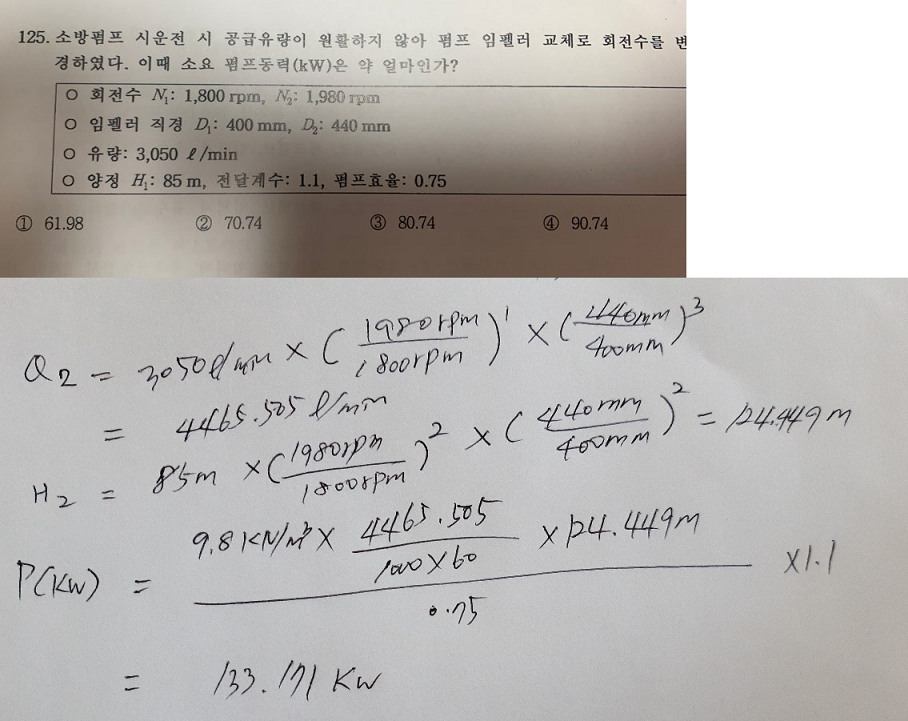 125. 소방펌프 시운전 시 공급유량이 원활하지 않아 펌프 임펠러 교체로 회전수를 변
경하였다. 이때 소요 펌프동력(kW)은 약 얼마인가?
○ 회전수 N₁: 1,800 rpm, N₂: 1,980 rpm
○ 임펠러 직경 D₁: 400 mm, D₂: 440 mm
○ 유량: 3,050 ℓ/min
○ 양정 H₁: 85 m, 전달계수: 1.1, 펌프효율: 0.75
① 61.98 ② 70.74 ③ 80.74 ④ 90.74
Q₂ = 3050ℓ/min × (1980rpm / 1800rpm)¹ × (440mm / 400mm)³
= 4465.505 ℓ/min
H₂ = 85m × (1980rpm / 1800rpm)² × (440mm / 400mm)² = 124.449m
P(KW) = (9.8KN/m³ × 4465.505 / 1000×60 × 124.449m) / 0.75 ×1.1
= 133.171 KW